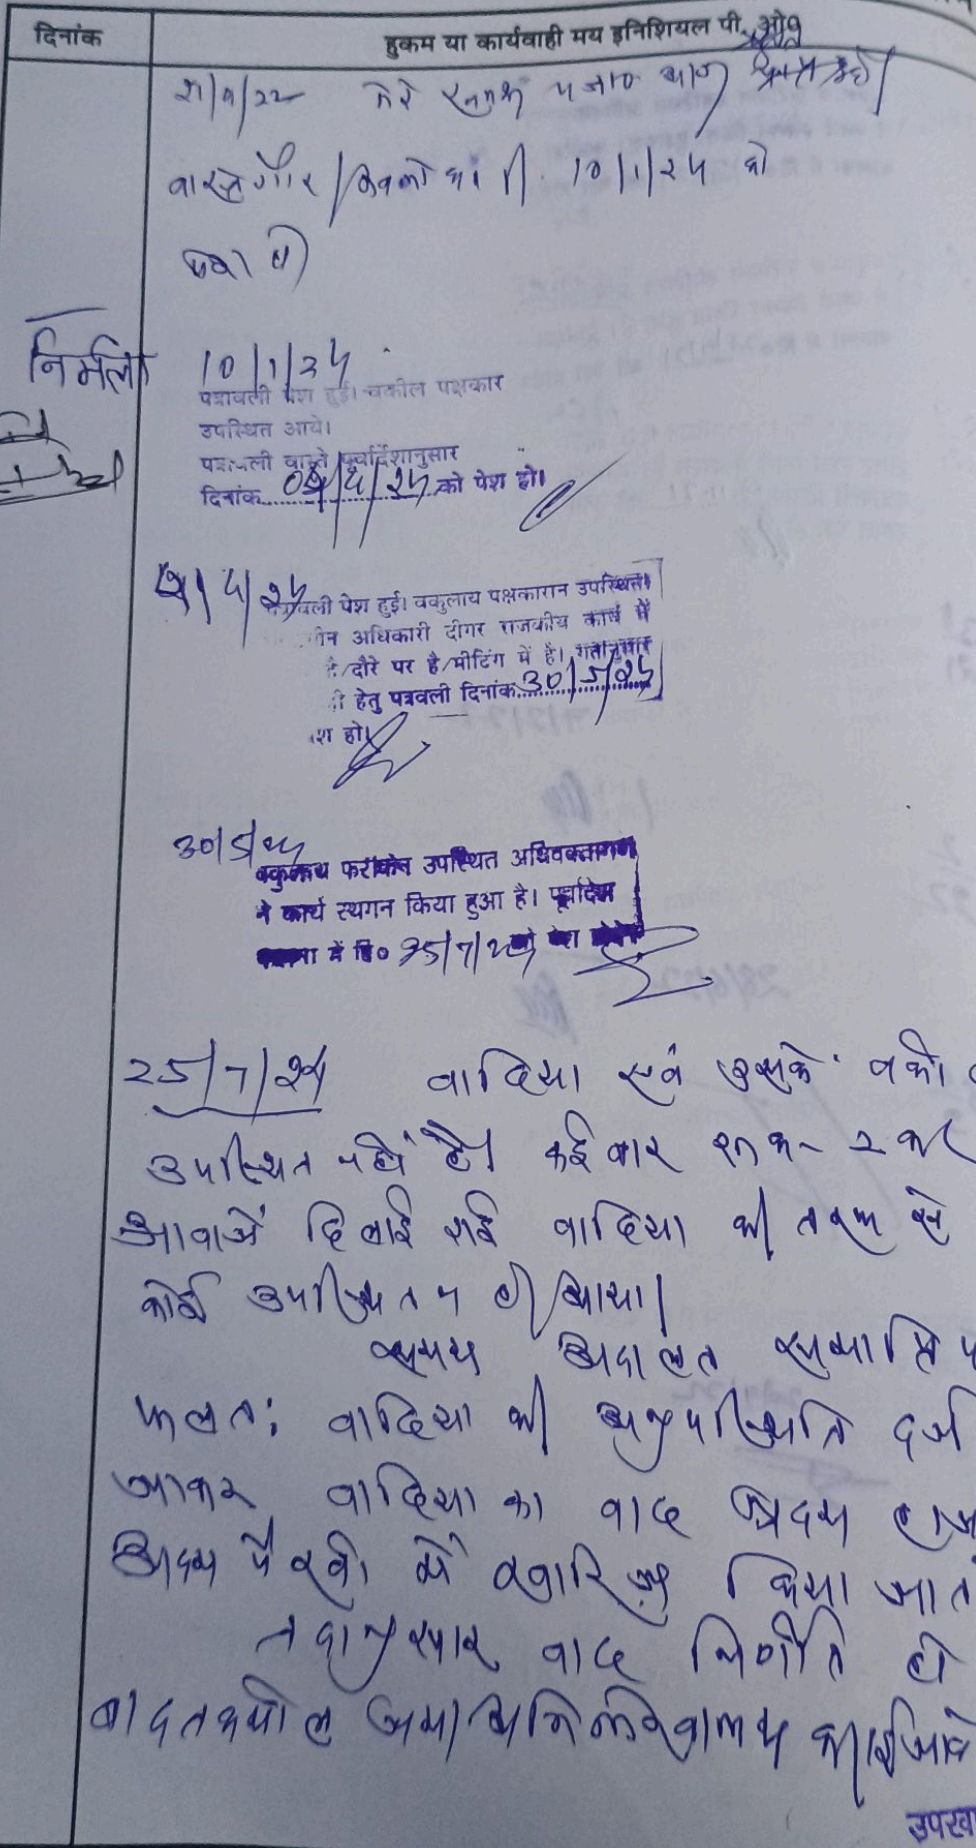 दिनांक
हुकम या कार्यवाही मय इनिशियल पी. ओ0
वास्ते गौर / 10/1/24 को
पेश हो
निर्मला
10/1/24
पत्रावली पेश हुई। वकील पक्षकार
उपस्थित आये।
पत्रावली वास्ते पूर्वादेशानुसार
दिनांक को पेश हो।
पत्रावली पेश हुई। वकुलाय पक्षकारान उपस्थित।
अधिकारी दीगर राजकीय कार्य में
है/दौरे पर है/मीटिंग में है। गतानुसार
हेतु पत्रवली दिनांक 30/5/24
हो।
30/5/24
वकुलाय फरीकेन उपस्थित अधिवक्तागण
ने कार्य स्थगन किया हुआ है। पूर्वादेश
में दि0 25/7/24 को पेश होवे
25/7/24 वादिया एवं उसके
उपस्थित नहीं है। कई बार रूक-रूक कर
आवाजें दिलाई गई वादिया की तरफ से
कोई उपस्थित नहीं आया।
समय अदालत समाप्ति
फलतः वादिया की अनुपस्थिति दर्ज
जाकर वादिया का वाद अदम
अदम पैरवी में खारिज किया
तदानुसार वाद निर्णीत हो
बाद तकमील जमा अभिलेखालय